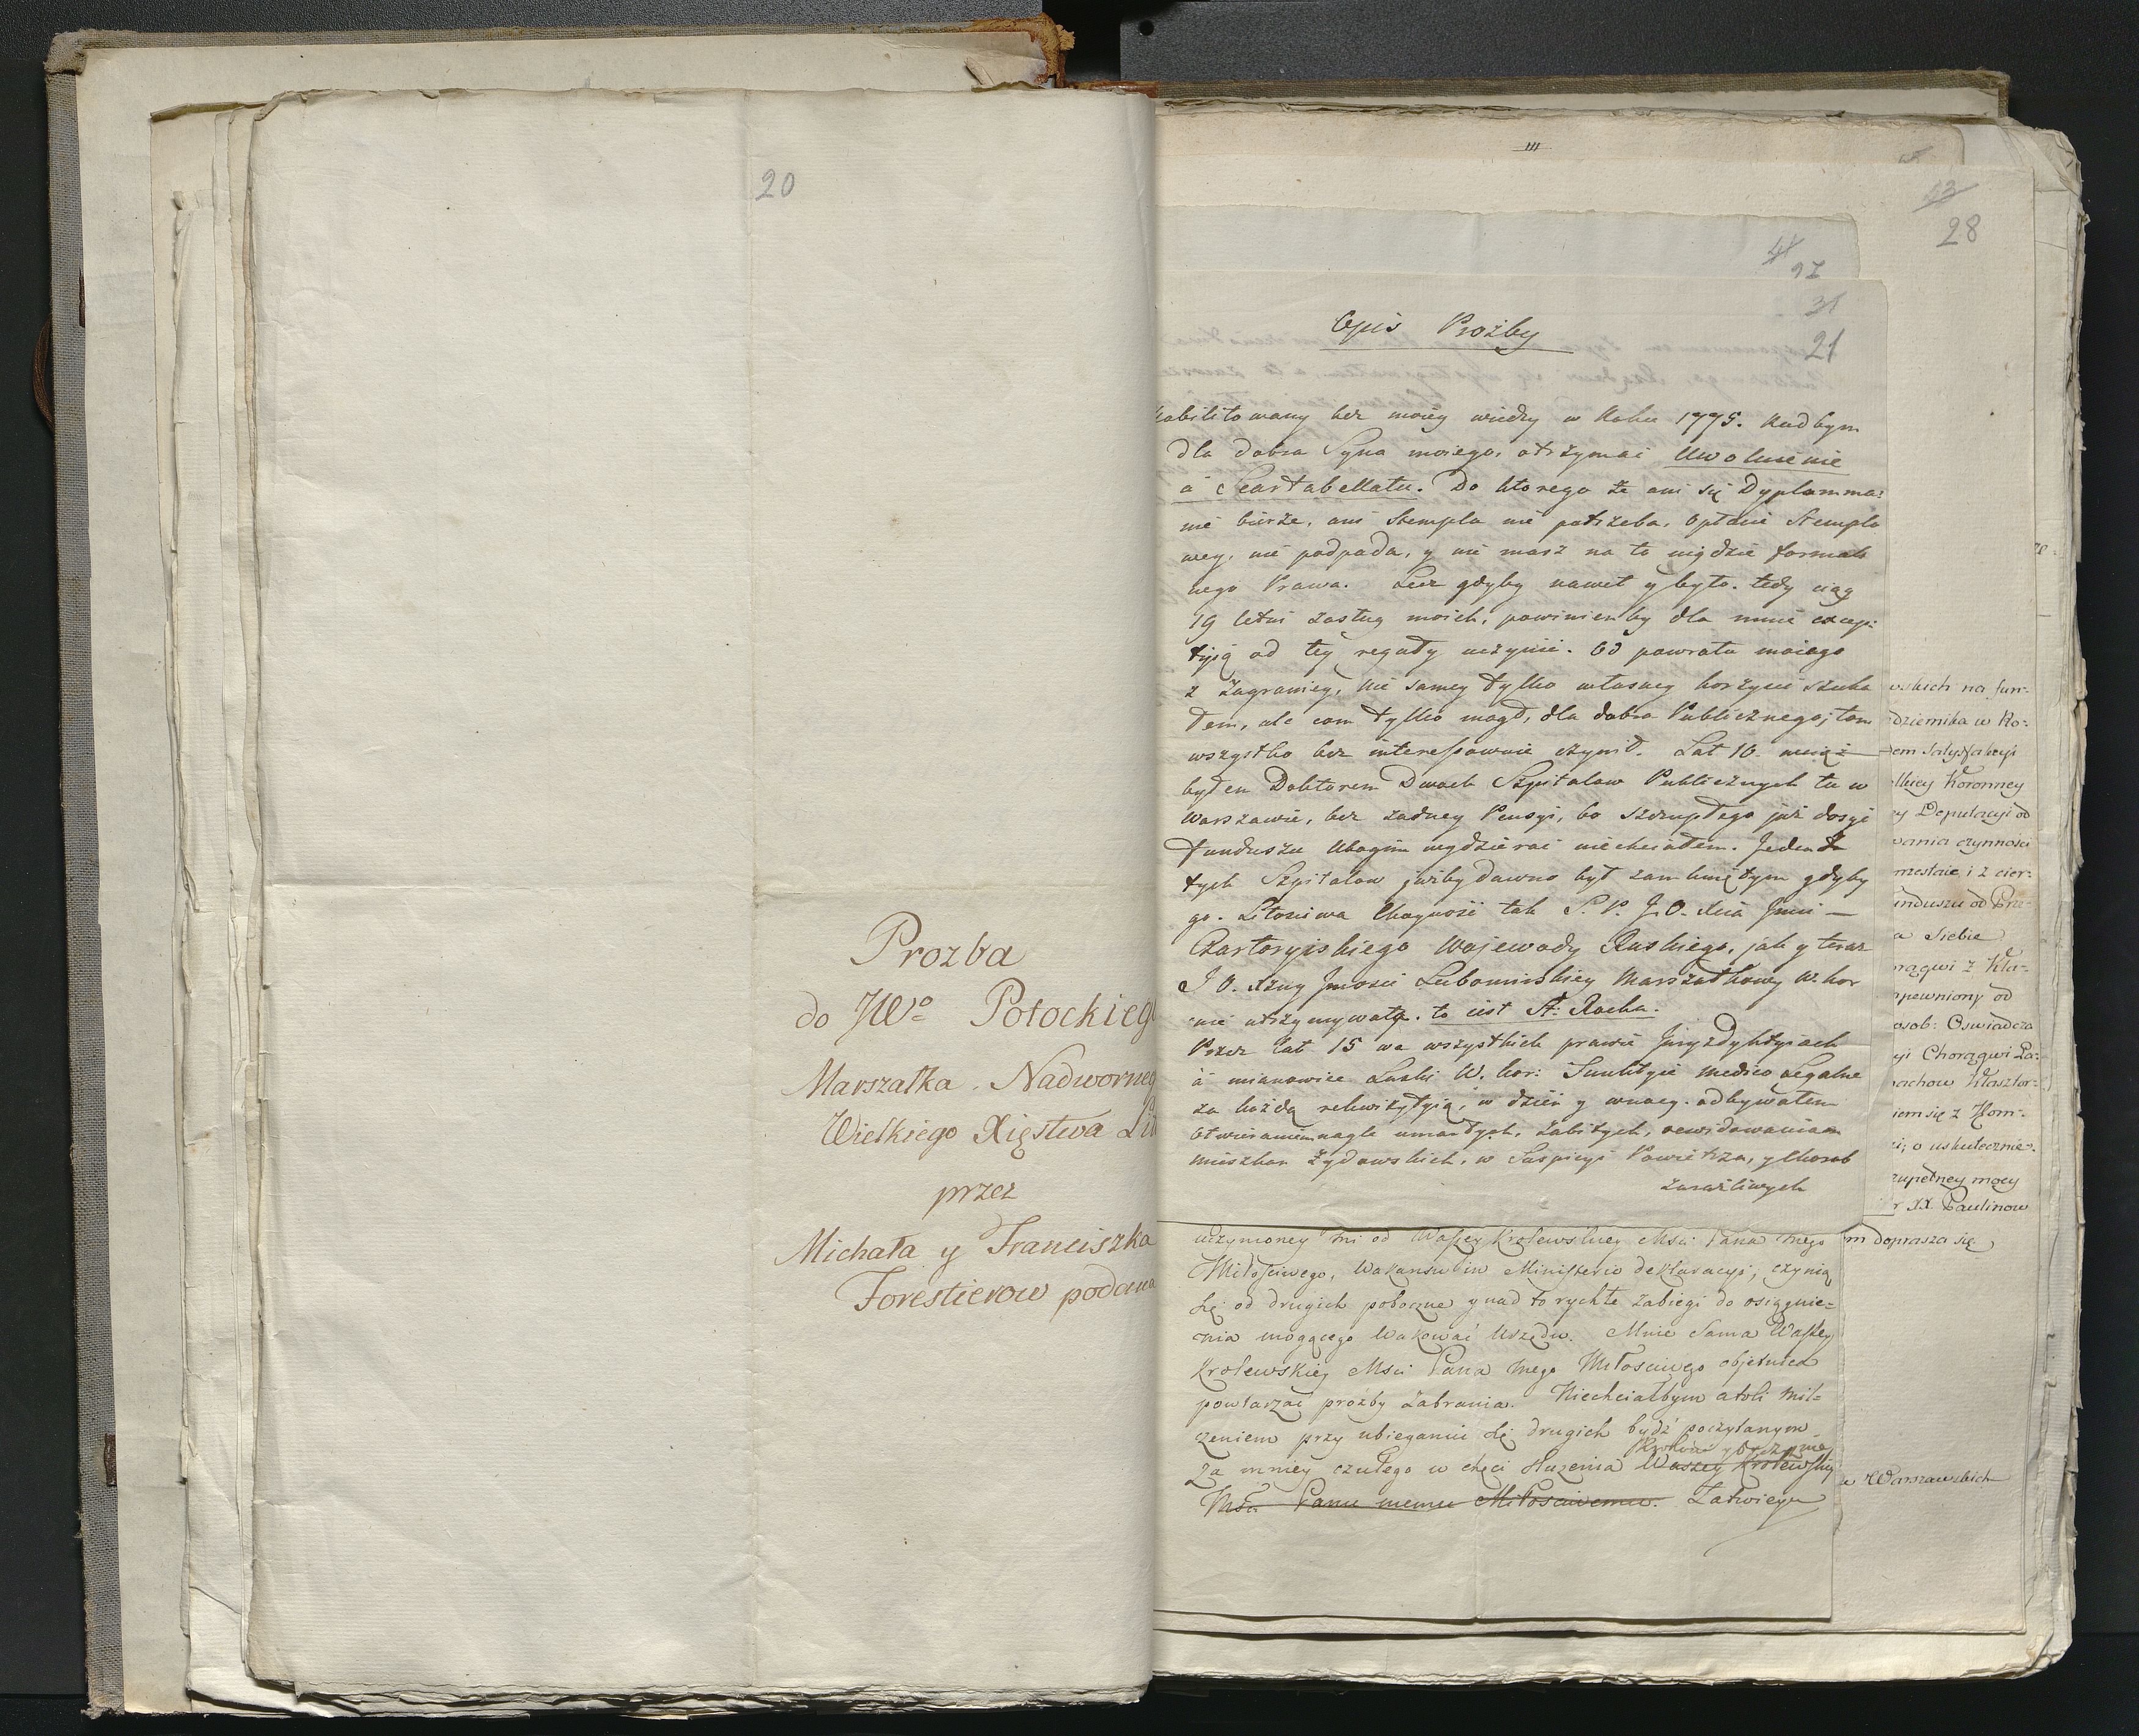 20
Prozba
do JWo Potockieg
Marszałka Nadworneg
Wielkiego Xięstwa Lit
przez
Michała y Franciszka
Forestierow podana
III
43
28
41
27
31
21
Opis Proźby
habilitowany bez moiey wiedzy w Roku 1775. Radbym
dla dobra Syna moiego, otrzymać Uwolnienie
à Scartabellatu. Do ktorego że ani się Dyplomma
nie bierze, ani Stempla nie potrzeba, Opłacie Stemplo
wey, nie podpada, y nie masz na to nigdzie formal
nego Prawa. Lecz gdyby nawet y było. tedy ciąg
19 letni zasług moich, powinien by dla mnie excep:
tyią od tey reguły uczynić. Od powrotu moiego
z Zagranicy, nie samey tylko własney korzyści szuka
łem, ale com tylko mogł, dla dobra Publicznego, tom
wszystko bez interessownie czynił. Lat 16
byłem Doktorem Dwoch Szpitalow Publicznych tu w
Warszawie, bez żadney Pensyi, bo szczupłego już dosyć
Funduszu Ubogim wydzierać niechciałem. Jeden z
tych Szpitalow jużby dawno był zamkniętym gdyby
go. Litościwa Choyność tak S. P. J. O. Xcia Jmci —
Czartoryiskiego Wojewody Ruskiego, jak y teraz
J O. Xzny Jmosci Lubomirskiey Marszałkowy W. kor
nie utrzymywała. to iest St: Rocha.
Przez lat 15 we wszystkich prawie Juryzdykcyiach
à mianowice Laski W. kor: Funkcyie medico Legalne
za każdą rekwizycyią, w dzień y w nocy. odbywałem
Otwieraniem nagle umarłych, zabitych, rewidowaniem
mieszkan Żydowskich, w Suspicyi Powietrza, y Chorob
zaraźliwych
uczynioney mi od Waszey Krolewskiey Mści Pana mego
Miłościwego, Wakansu in Ministerio deklaracyi, czynią
się od drugich poboczne y nad to rychłe zabiegi do osiągnie=
nia mogącego Wakować Urzędu. Mnie Sama Waszey
Krolewskiey Mści Pana mego Miłościwego objetnica
powtarzać proźby zabrania. Niechciałbym atoli mil=
czeniem przy ubieganiu się drugich bydź poczytanym
Krolowi y Oyczyznie
za mniey czułego w chęci służenia Waszey Krolewskiey
Mści Panu memu Miłościwemu. Łatwiey
na fun:
dziernika w Ro:
em Satysfakcyi
lkiey Koronney
y Deputacyi od
wania czynności
mestaie, i z cier:
unduszu od Prze:
a Siebie
rągwi z Kla=
pewniony od
osob: Oswiadcza
yi Chorągwi Pa:
achow Klasztor:
iem się z Kom=
i; o uskutecznie:
zupełney mocy
r XX. Paulinow
m doprasza się
w Warszawskich